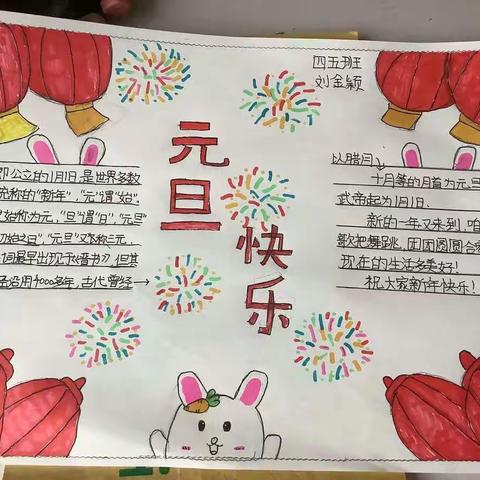 四五班
刘金颖
元旦
快乐
即公立的1月1日,是世界多数
统称的"新年","元"谓"始",
始称为元,"旦"谓"日","元旦"
初始之日","元旦"又称三元,
词最早出现于《晋书》,但其
沿用4000多年,古代曾经→
以腊月、
十月等的月首为元旦
武帝起为1月1日.
新的一年又来到,咱
歌把舞跳,团团圆圆合家
现在的生活多美好!
祝大家新年快乐!